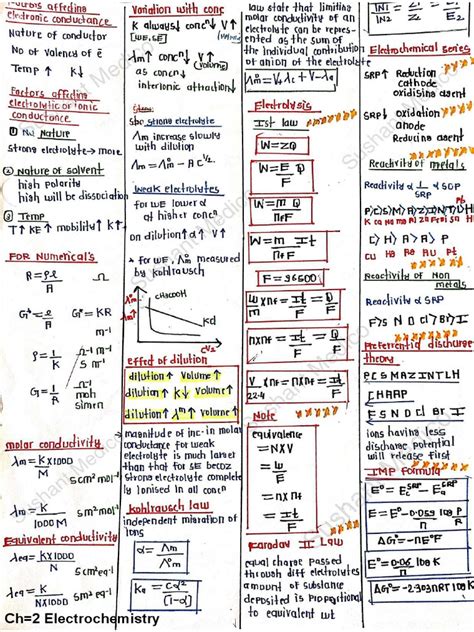 Factors affecting
electronic conductance
Nature of conductor
No of Valency of ē
Temp ↑ K↓
Factors affecting
electrolytic or ionic
conductance
① Nature
strong electrolyte → more
② Nature of solvent
high polarity
high will be dissociation
③ Temp
T↑ KE↑ mobility↑ K↑
FOR Numerical's
R = ρℓ/A
G* = ℓ/A
G* = KR
m-1
ρ = 1/K
G = 1/R
moh
simen
molar conductivity
λm = K×1000/M
S cm² mol-1
λm = K/1000 M
S m² mol-1
Equivalent conductivity
λeq = K×1000/N
S cm² eq-1
λeq = K/N×1000
S m² eq-1
Ch=2 Electrochemistry
Variation with conc
K always↓ concⁿ↓ V↑
[WE, SE]
λm ↑ concⁿ↓ V↑
(volume)
as concⁿ↓
interionic attraction↓
strong electrolyte
Λm increase slowly
with dilution
Λm = Λ°m - A C^1/2
Weak electrolytes
for WE lower α
at higher concⁿ
on dilution↑ α↑ V↑
* for WE, Λ°m measured
by Kohlrausch
Λm
CH3COOH
Kcl
C^1/2
effect of dilution
dilution↑ Volume↑
dilution↑ K↓ Volume↑
dilution↑ λm↑ volume↑
magnitude of inc- in molar
conductance for weak
electrolyte is much larger
than that for SE becoz
strong electrolyte complete
ly Ionised in all concⁿ
Kohlrausch law
independent migration of
Ions
α = Λm/Λ°m
Ka = Cα²/[1-α]
law state that limiting
molar conductivity of an
electrolyte can be repres-
ented as the sum of
the individual contribution
of anion of the electrolyte
Λ°m = V+λ+ + V-λ-
Electrolysis
Ist law
W = ZQ
W = E Q/F
W = M Q/nf F
W = m It/nf F
F = 96500
W×nf/m = It/F = Q/F
n×nf = It/F = Q/F
V/22.4 × nf = n×nf = It/F
Note
equivalence
= N×V
= W/E
= n×nf
= It/F
Faraday II Law
equal charge passed
through diff electrolytes
amount of substance
deposited is proportional
to equivalent wt
IN1/IN2 = Z1/Z2 = E1/E2
Electrochemical series
SRP↑ Reduction
cathode
oxidising agent
SRP↓ oxidation
anode
Reducing agent
Reactivity of metals
Reactivity α 1/SRP α SOP
P>C>S>M>A>Z>I>N>T>H>
K Ca Na Mg Al Zn Fe Ni Sn H
C> H> A> P
Cu Hg Au Pt
Reactivity of Non
metals
Reactivity α SRP
F>S N O Cl>Br>I
Preferential discharge
theory
PCSMAZINTLH
CHAAP
FSNO Cl Br I
ions having less
discharge potential
will release first
IMP Formula
E° = E°c^SRP - E°a^SRP
E = E° - 0.059/n log P/R
ΔG° = -nE°F
E° = 0.06/n log K
ΔG° = -2.303nRT log K
Susham Medico